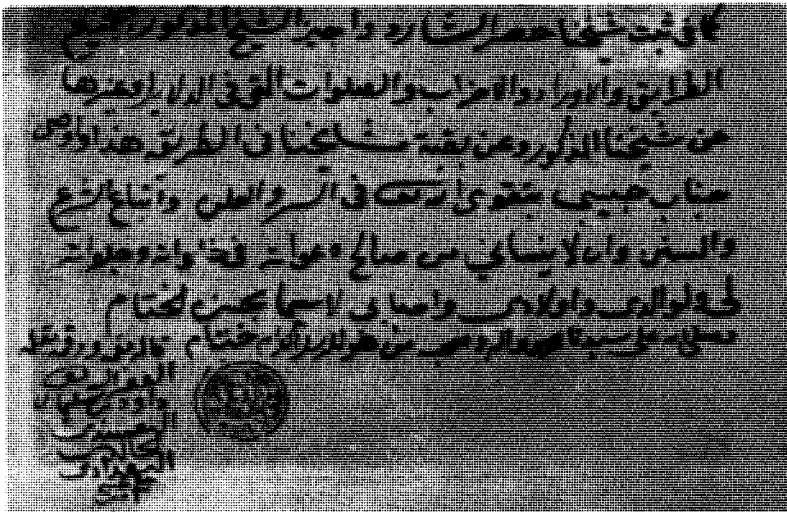 كما في ثبت شيخنا حضر الشارد واجيز الشيخ المذكور بجميع
الطرايق والاوراد والاحزاب والصلوات التي في الدلايل وغيرها
عن شيخنا المذكور وعن بقية مشايخنا في الطريق هذا واوصي
جناب حبيبي بتقوى الله تعالى في السر والعلن واتباع الشرع
والسنن وان لا ينساني من صالح دعواته في خلواته وجلواته
لي ولوالدي واولادي واحبابي لاسيما بحسن الختام
وصلى الله على سيدنا محمد واله وصحبه ختام
قاله بفمه ورقمه بقلمه
داود بن سليمان
البغدادي